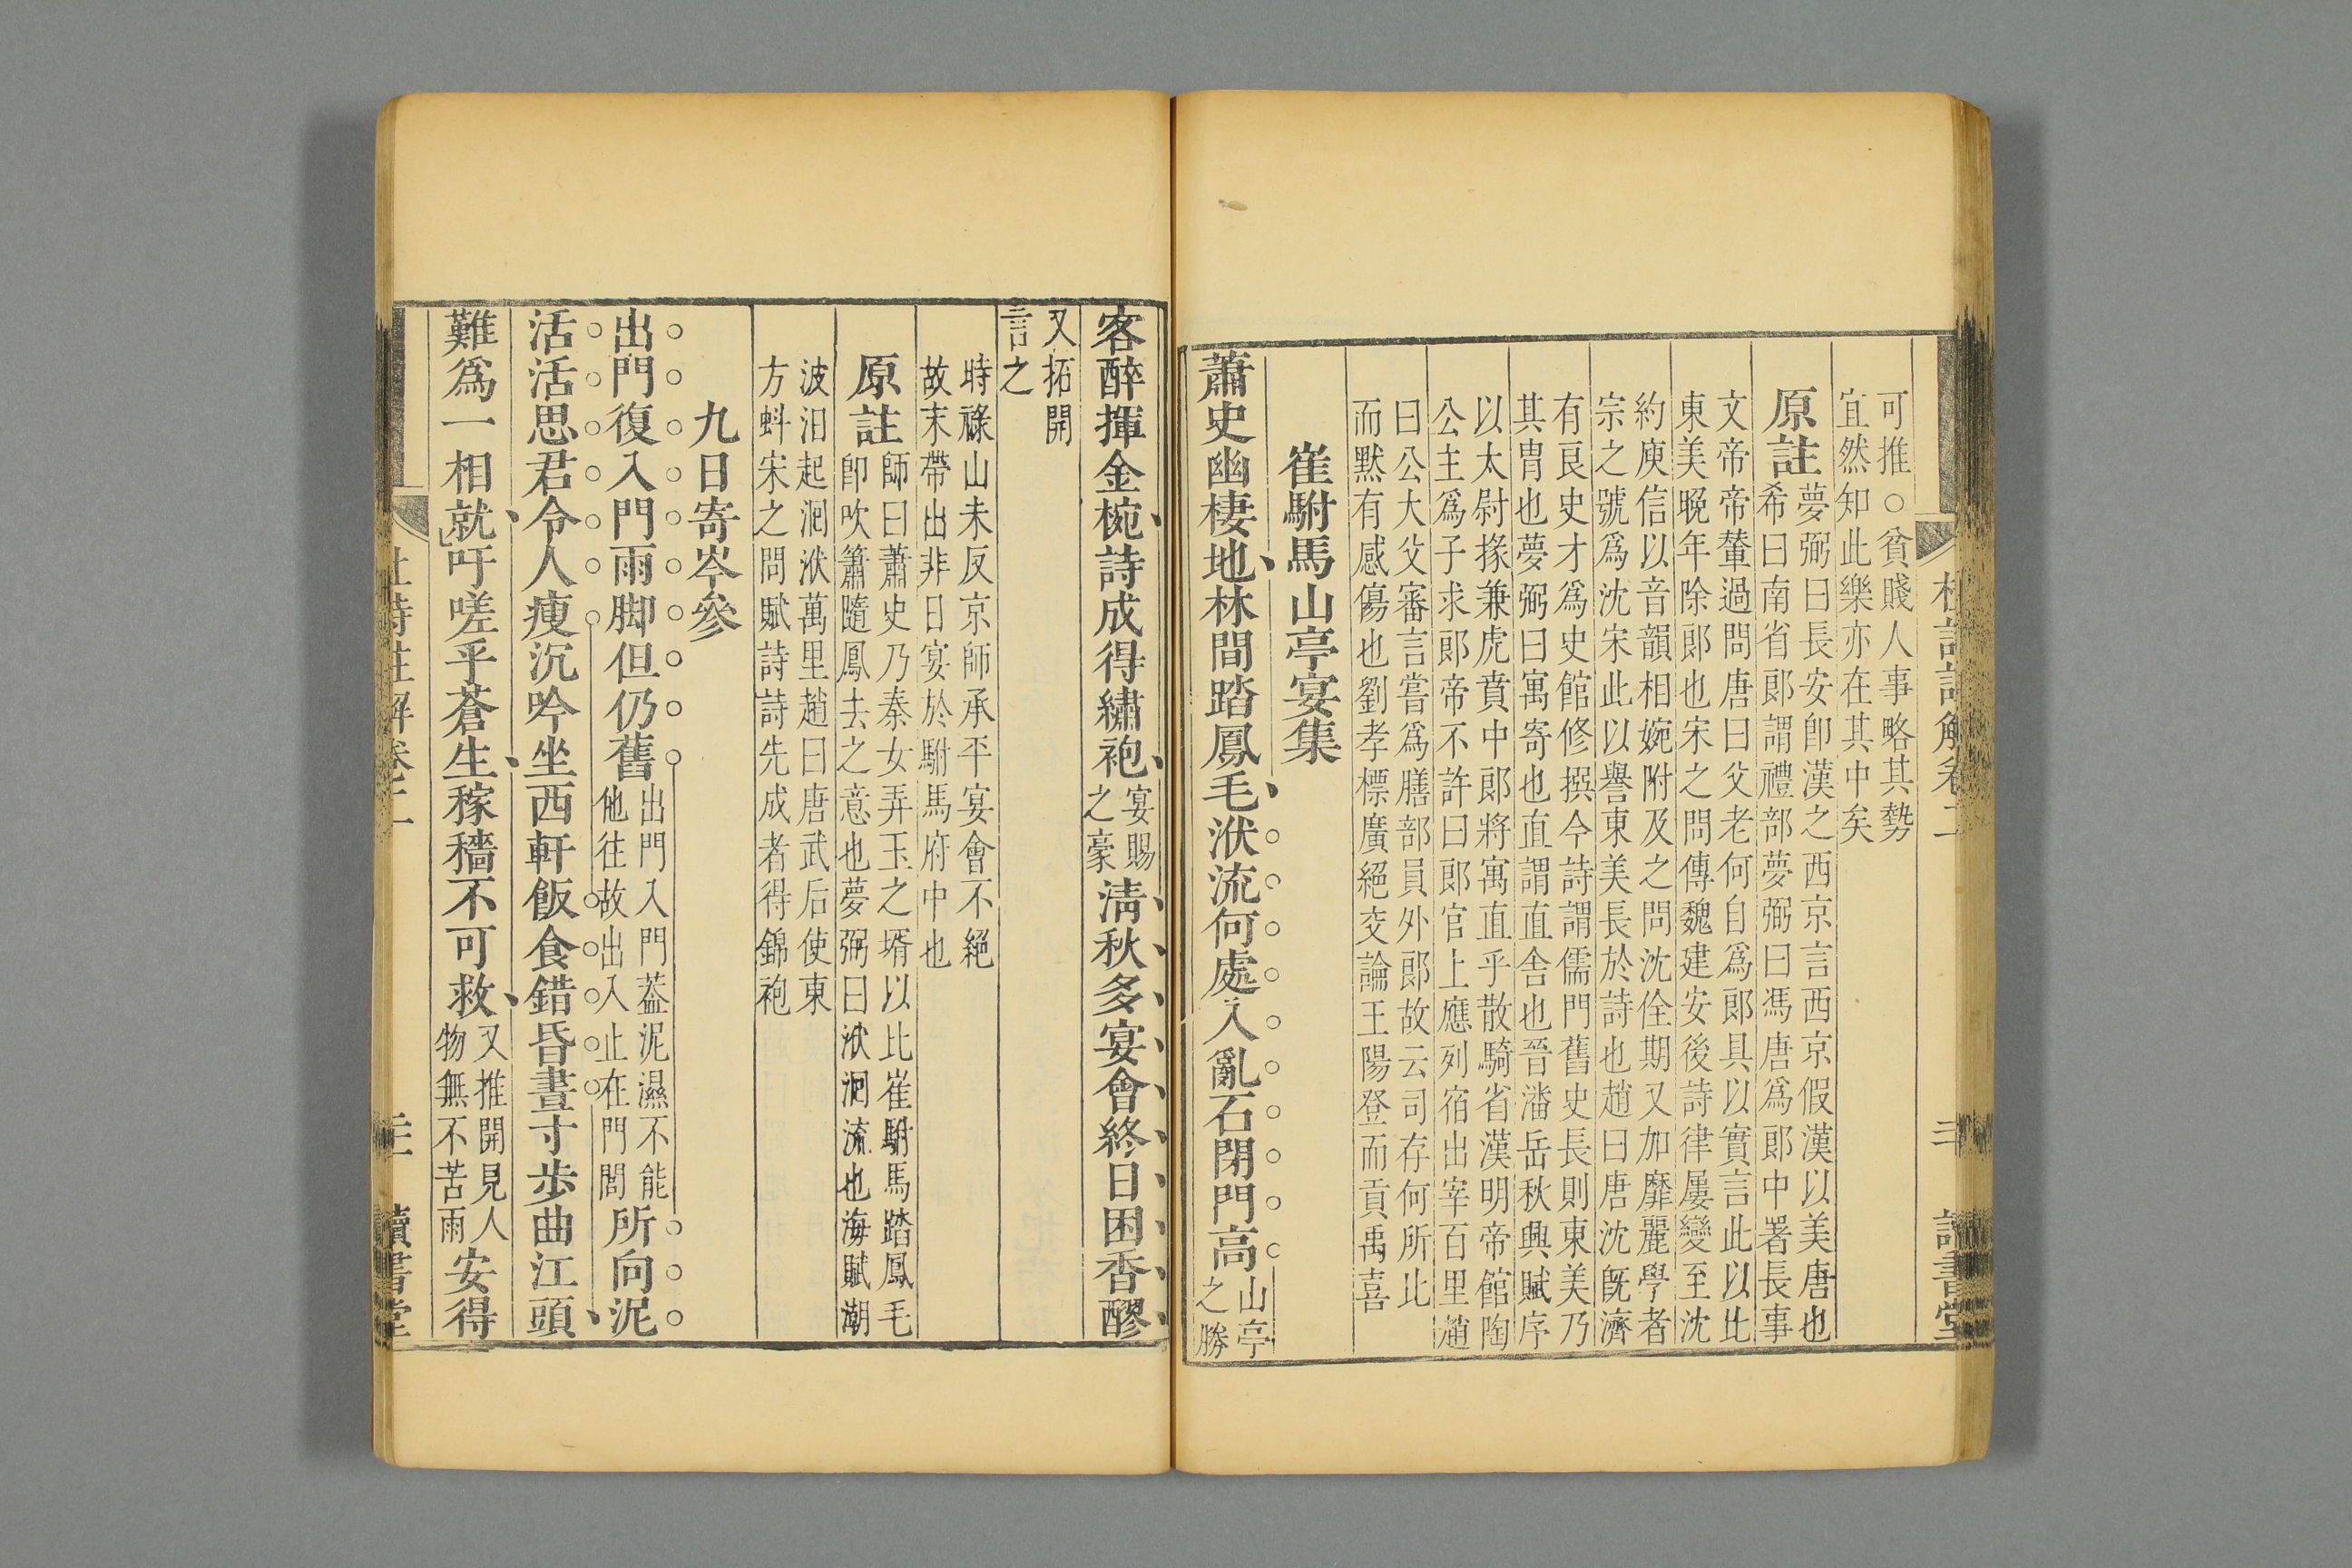 杜詩註解卷二　二十　讀書堂
可推○貧賤人事略其勢
宜然知此樂亦在其中矣
原註
夢弼曰長安卽漢之西京言西京假漢以美唐也
希曰南省郞謂禮部夢弼曰馮唐爲郞中署長事
文帝帝輦過問唐曰父老何自爲郞具以實言此以比
東美晚年除郞也宋之問傳魏建安後詩律屢變至沈
約庾信以音韻相婉附及之問沈佺期又加靡麗學者
宗之號爲沈宋此以譽東美長於詩也趙曰唐沈旣濟
有良史才爲史館修撰今詩謂儒門舊史長則東美乃
其冑也夢弼曰寓寄也直謂直舍也晉潘岳秋興賦序
以太尉掾兼虎賁中郞將寓直乎散騎省漢明帝館陶
公主爲子求郞帝不許曰郞官上應列宿出宰百里趙
曰公大父審言嘗爲膳部員外郞故云司存何所比
而默有感傷也劉孝標廣絕交論王陽登而貢禹喜
崔駙馬山亭宴集
蕭史幽棲地林間踏鳳毛洑流何處入亂石閉門高山亭之勝
客醉揮金椀詩成得繡袍宴賜之豪淸秋多宴會終日困香醪
又拓開
言之
時祿山未反京師承平宴會不絕
故末帶出非日宴於駙馬府中也
原註
師曰蕭史乃秦女弄玉之壻以比崔駙馬踏鳳毛
卽吹簫隨鳳去之意也夢弼曰洑洄流也海賦潮
波汨起洄洑萬里趙曰唐武后使東
方虯宋之問賦詩詩先成者得錦袍
九日寄岑參
出門復入門雨脚但仍舊出門入門葢泥濕不能他往故出入止在門閭所向泥
活活思君令人瘦沉吟坐西軒飯食錯昏晝寸步曲江頭
難爲一相就吁嗟乎蒼生稼穡不可救又推開見人物無不苦雨安得
杜詩註解卷二　讀書堂